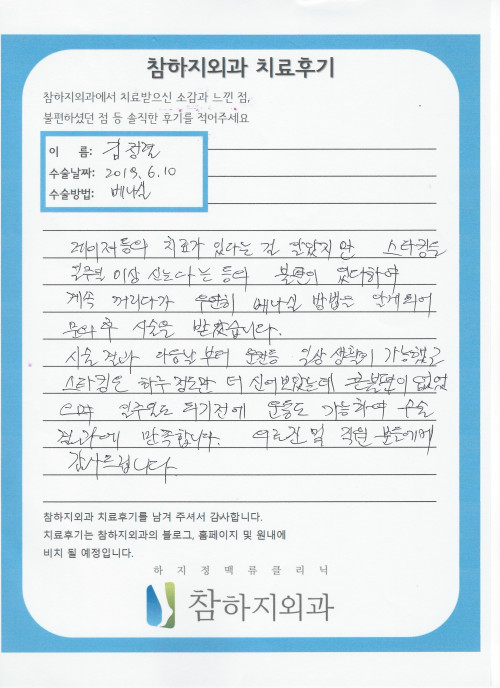 참하지외과 치료후기
참하지외과에서 치료받으신 소감과 느낀 점,
불편하셨던 점 등 솔직한 후기를 적어주세요
이 름: 김정렬
수술날짜: 2019. 6. 10
수술방법: 베나실
레이저등의 치료가 있다는 걸 알았지만 스타킹을
일주일 이상 신는다는 등의 불편이 였다하여
계속 꺼리다가 우연히 베나실 방법을 알게되어
문의후 시술을 받았습니다.
시술 결과 다음날부터 운전등 일상 생활이 가능했고
스타킹은 하루 정도만 더 신어보았는데 큰불편이 없었
으며 일주일도 되기전에 운동도 가능하여 수술
결과에 만족합니다. 의료진 및 직원 분들에게
감사드립니다.
참하지외과 치료후기를 남겨 주셔서 감사합니다.
치료후기는 참하지외과의 블로그, 홈페이지 및 원내에
비치 될 예정입니다.
하지정맥류클리닉
참하지외과